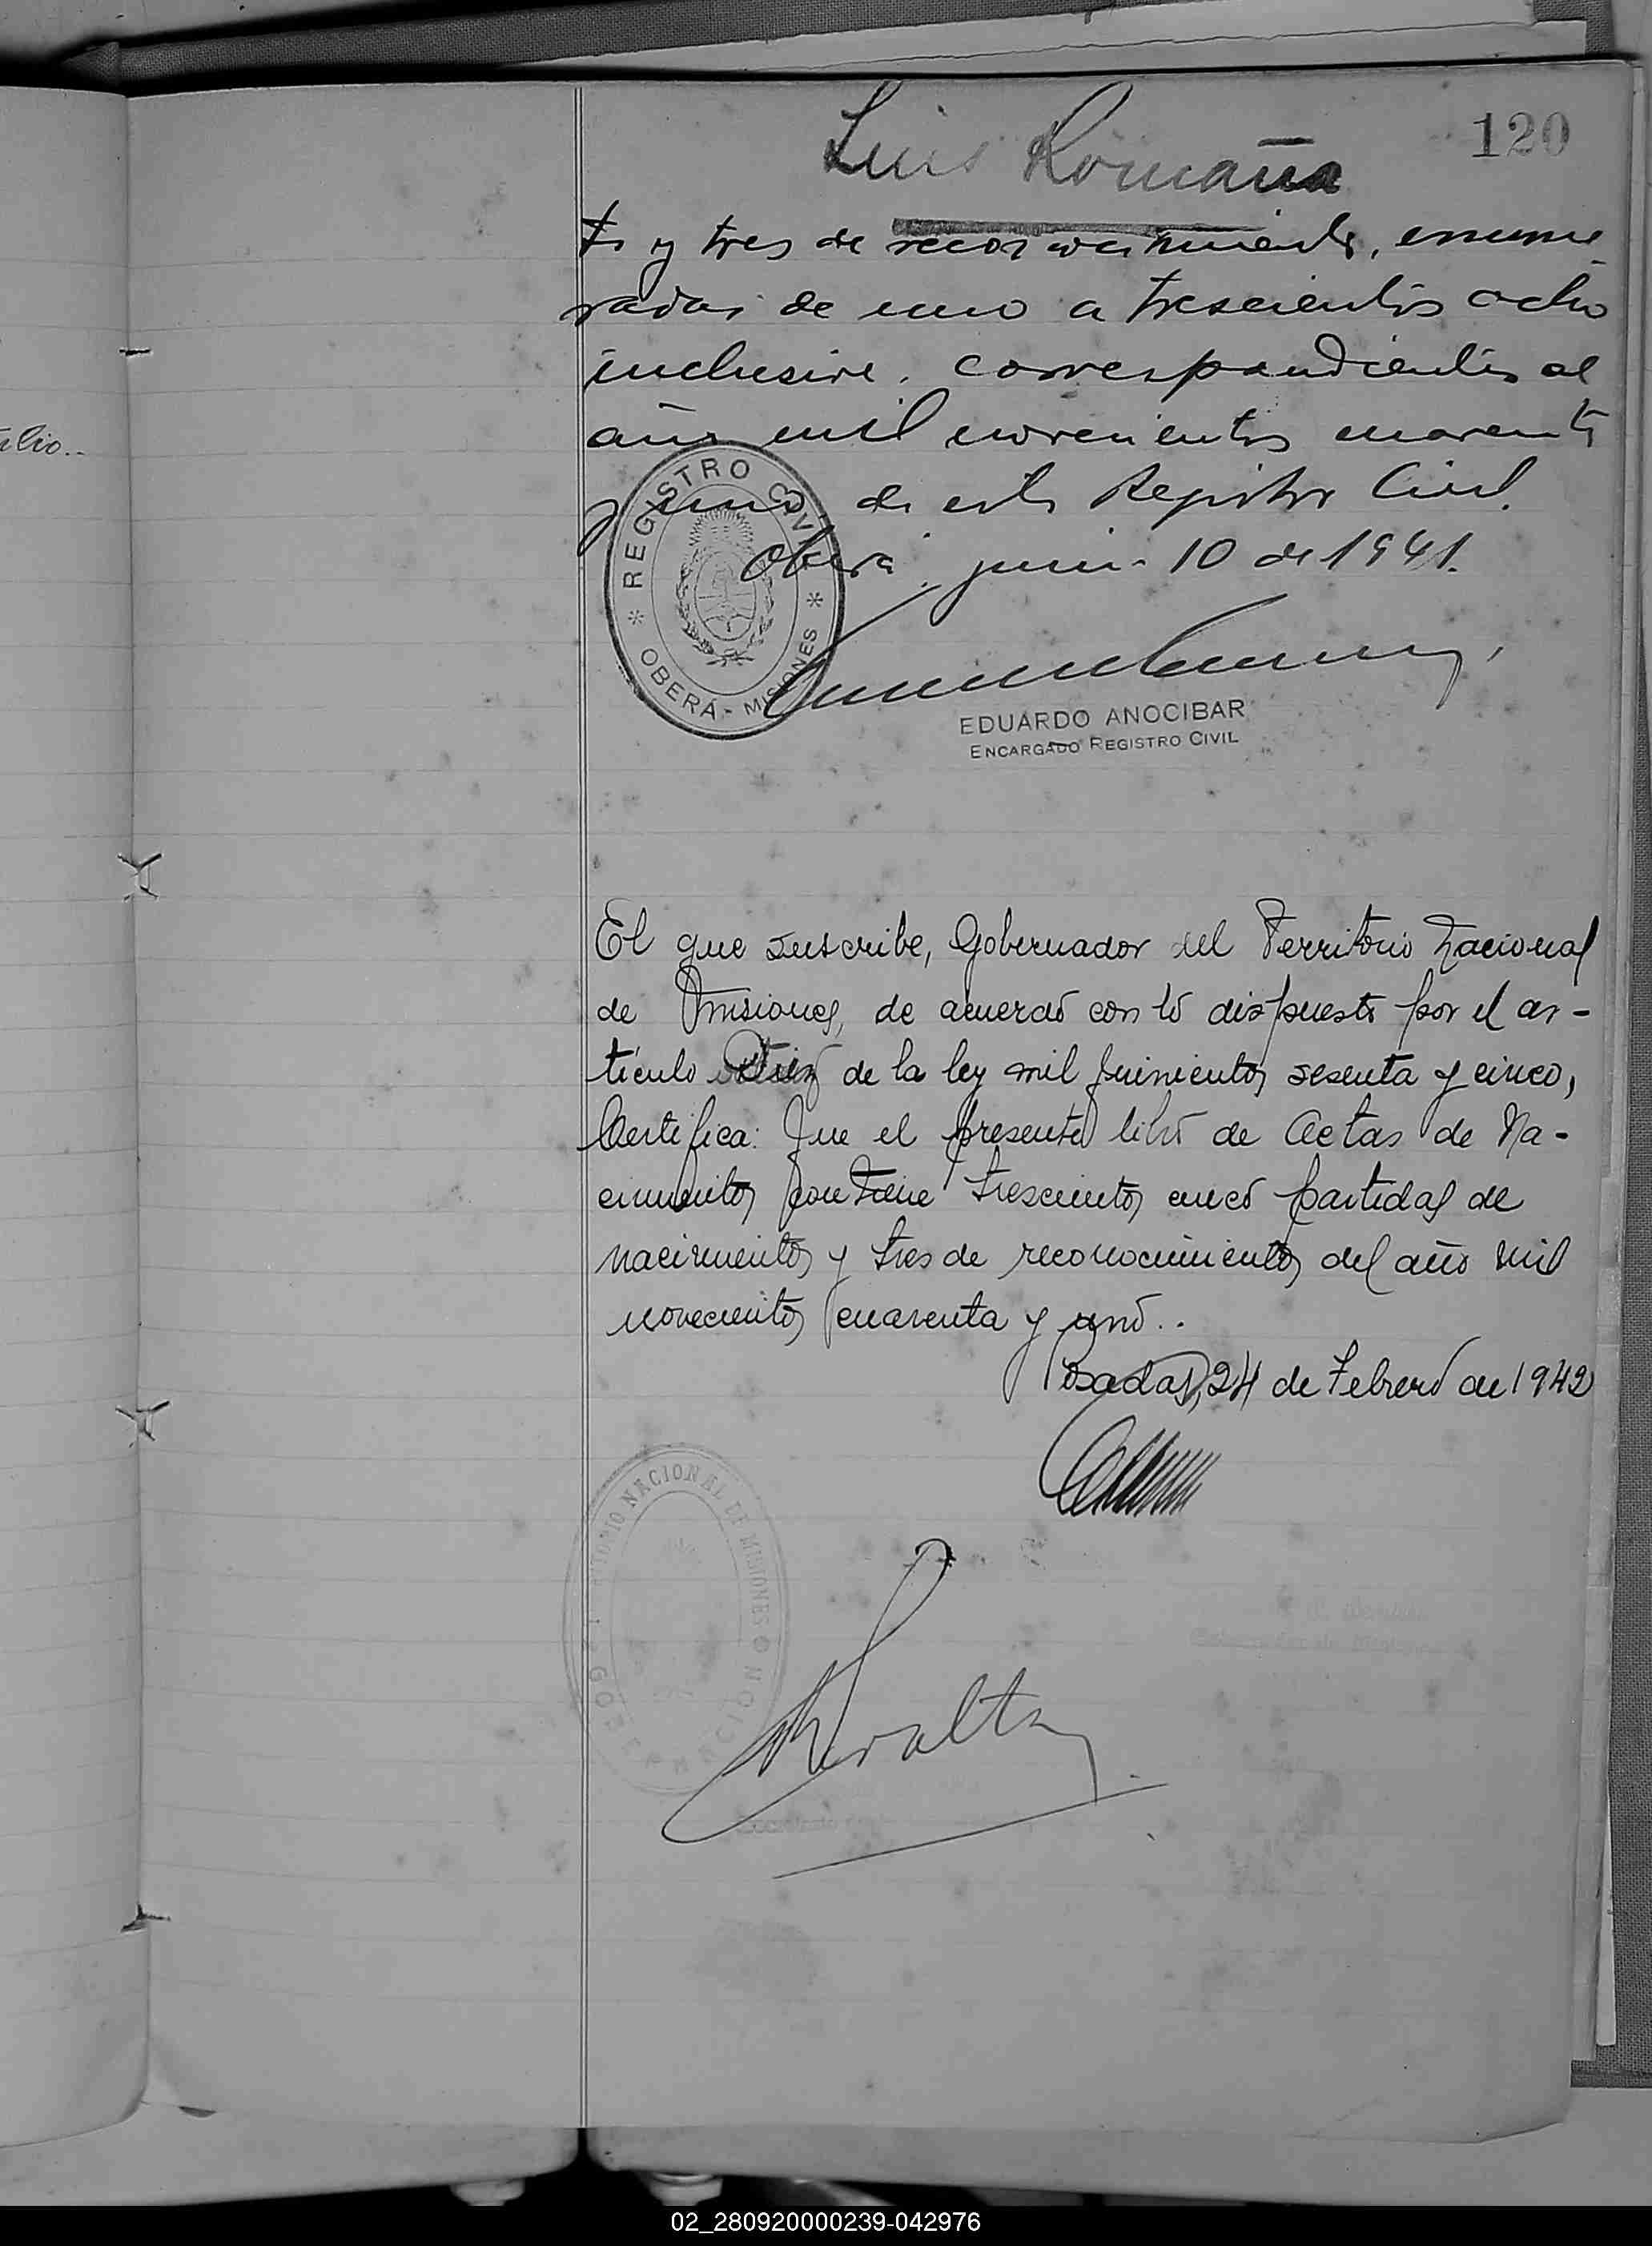 120
Luis Romaña
to y tres de reconocimiento, enume
radas de uno a trescientos ocho
inclusive, correspondientes al
año mil novecientos cuarenta
y uno, de este Registro Civil.
Oberá, junio 10 de 1941.
REGISTRO CIVIL
OBERÁ - MISIONES
EDUARDO ANOCIBAR
ENCARGADO REGISTRO CIVIL
ulio..
El que suscribe, Gobernador del Territorio Nacional
de Misiones, de acuerdo con lo dispuesto por el ar-
tículo diez de la ley mil quinientos sesenta y cinco,
Certifica: Que el presente libro de Actas de Na-
cimientos contiene trescientos cinco partidas de
nacimientos y tres de reconocimientos del año mil
novecientos cuarenta y uno..
Posadas, 24 de Febrero de 1942
GOBERNACION TERRITORIO NACIONAL DE MISIONES
Peralta
02_280920000239-042976